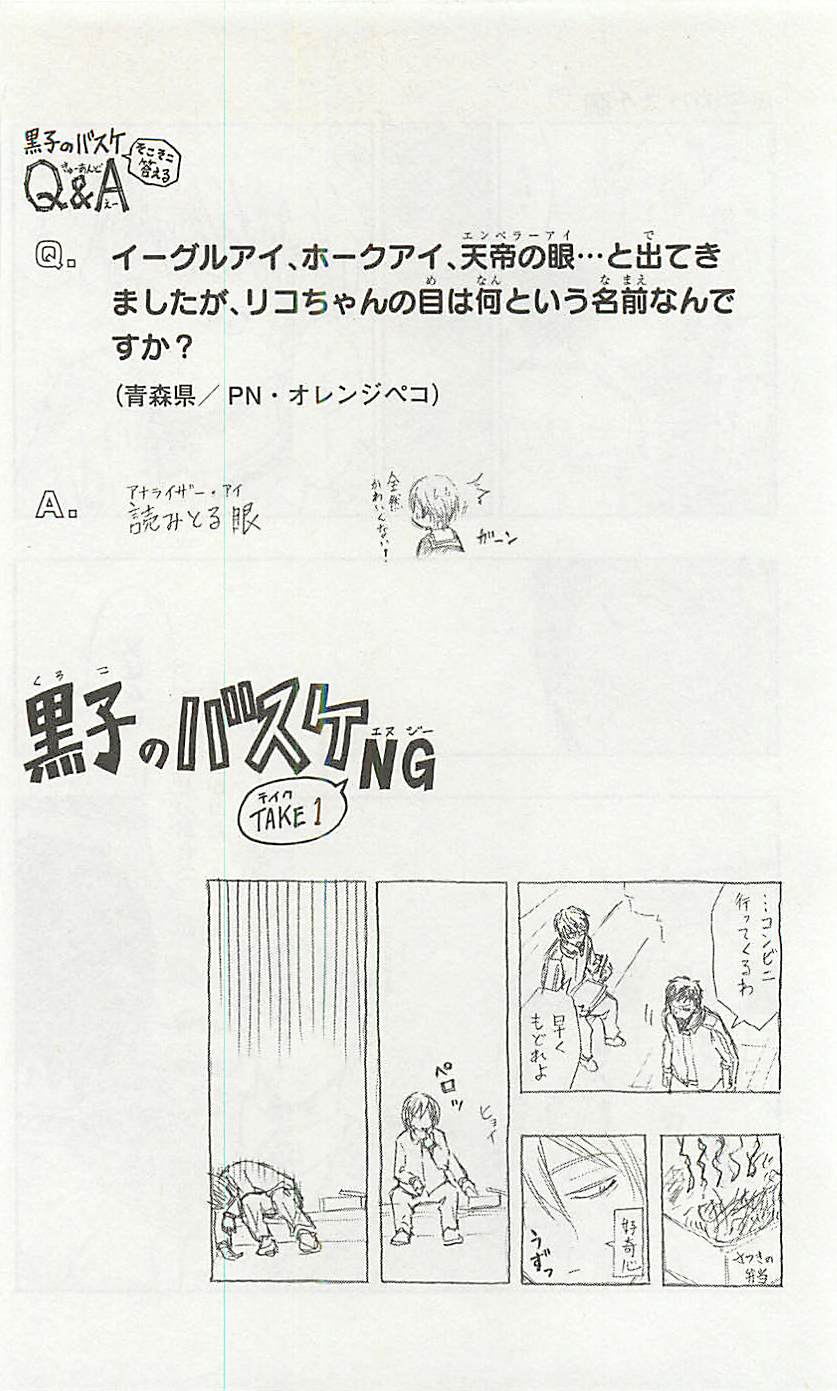 黒子のバスケ
そこそこ
答える
Q&A
きゅーあんどえー
Q. イーグルアイ、ホークアイ、天帝の眼…と出てき
ましたが、リコちゃんの目は何という名前なんで
すか？
（青森県／PN・オレンジペコ）
A. 読みとる眼
アナライザー・アイ
全然
かわいくない！
ガーン
黒子のバスケNG
くろこ
エヌジー
テイク
TAKE 1
…コンビニ
行ってくるわ
早く
もどれよ
さつきの
弁当
好奇心
うずっ
ヒョイ
ペロッ